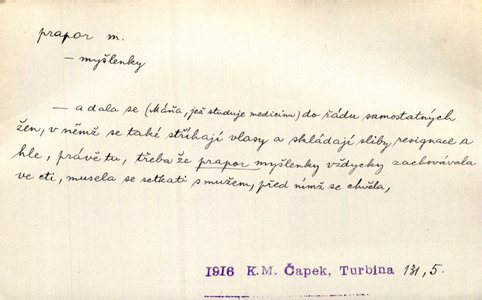 prapor m.
— myšlenky
— a dala se (Máňa, jež studuje medicinu) do řádu samostatných
žen, v němž se také stříhají vlasy a skládají sliby resignace a
hle, právě tu, třeba že prapor myšlenky vždycky zachovávala
ve cti, musela se setkati s mužem, před nímž se chvěla,
1916 K.M. Čapek, Turbina 131, 5.